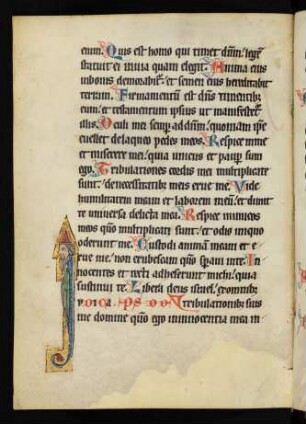 eum. Quis est homo qui timet dnm. lege
statuit ei in via quam elegit. Anima eius
in bonis demorabit. et semen eius hereditabit
terram. Firmamentu est dns timentib
eum. et testamentum ipsius ut manifestet
illis. Oculi mei semp ad dnm. quoniam ipse
euellet de laqueo pedes meos. Respice in me
et miserere mei. quia unicus et paup sum
ego. Tribulationes cordis mei multiplicate
sunt. de necessitatib meis erue me. Vide
humilitatem meam et laborem meu. et dimit
te universa delicta mea. Respice inimicos
meos qm multiplicati sunt. et odio iniquo
oderunt me. Custodi animam meam et e
rue me. non erubescam qm speraui in te. In
nocentes et recti adheserunt michi. quia
sustinui te. Libera deus israel. ex omnib
tribulationib suis
me domine qm ego in innocentia mea in